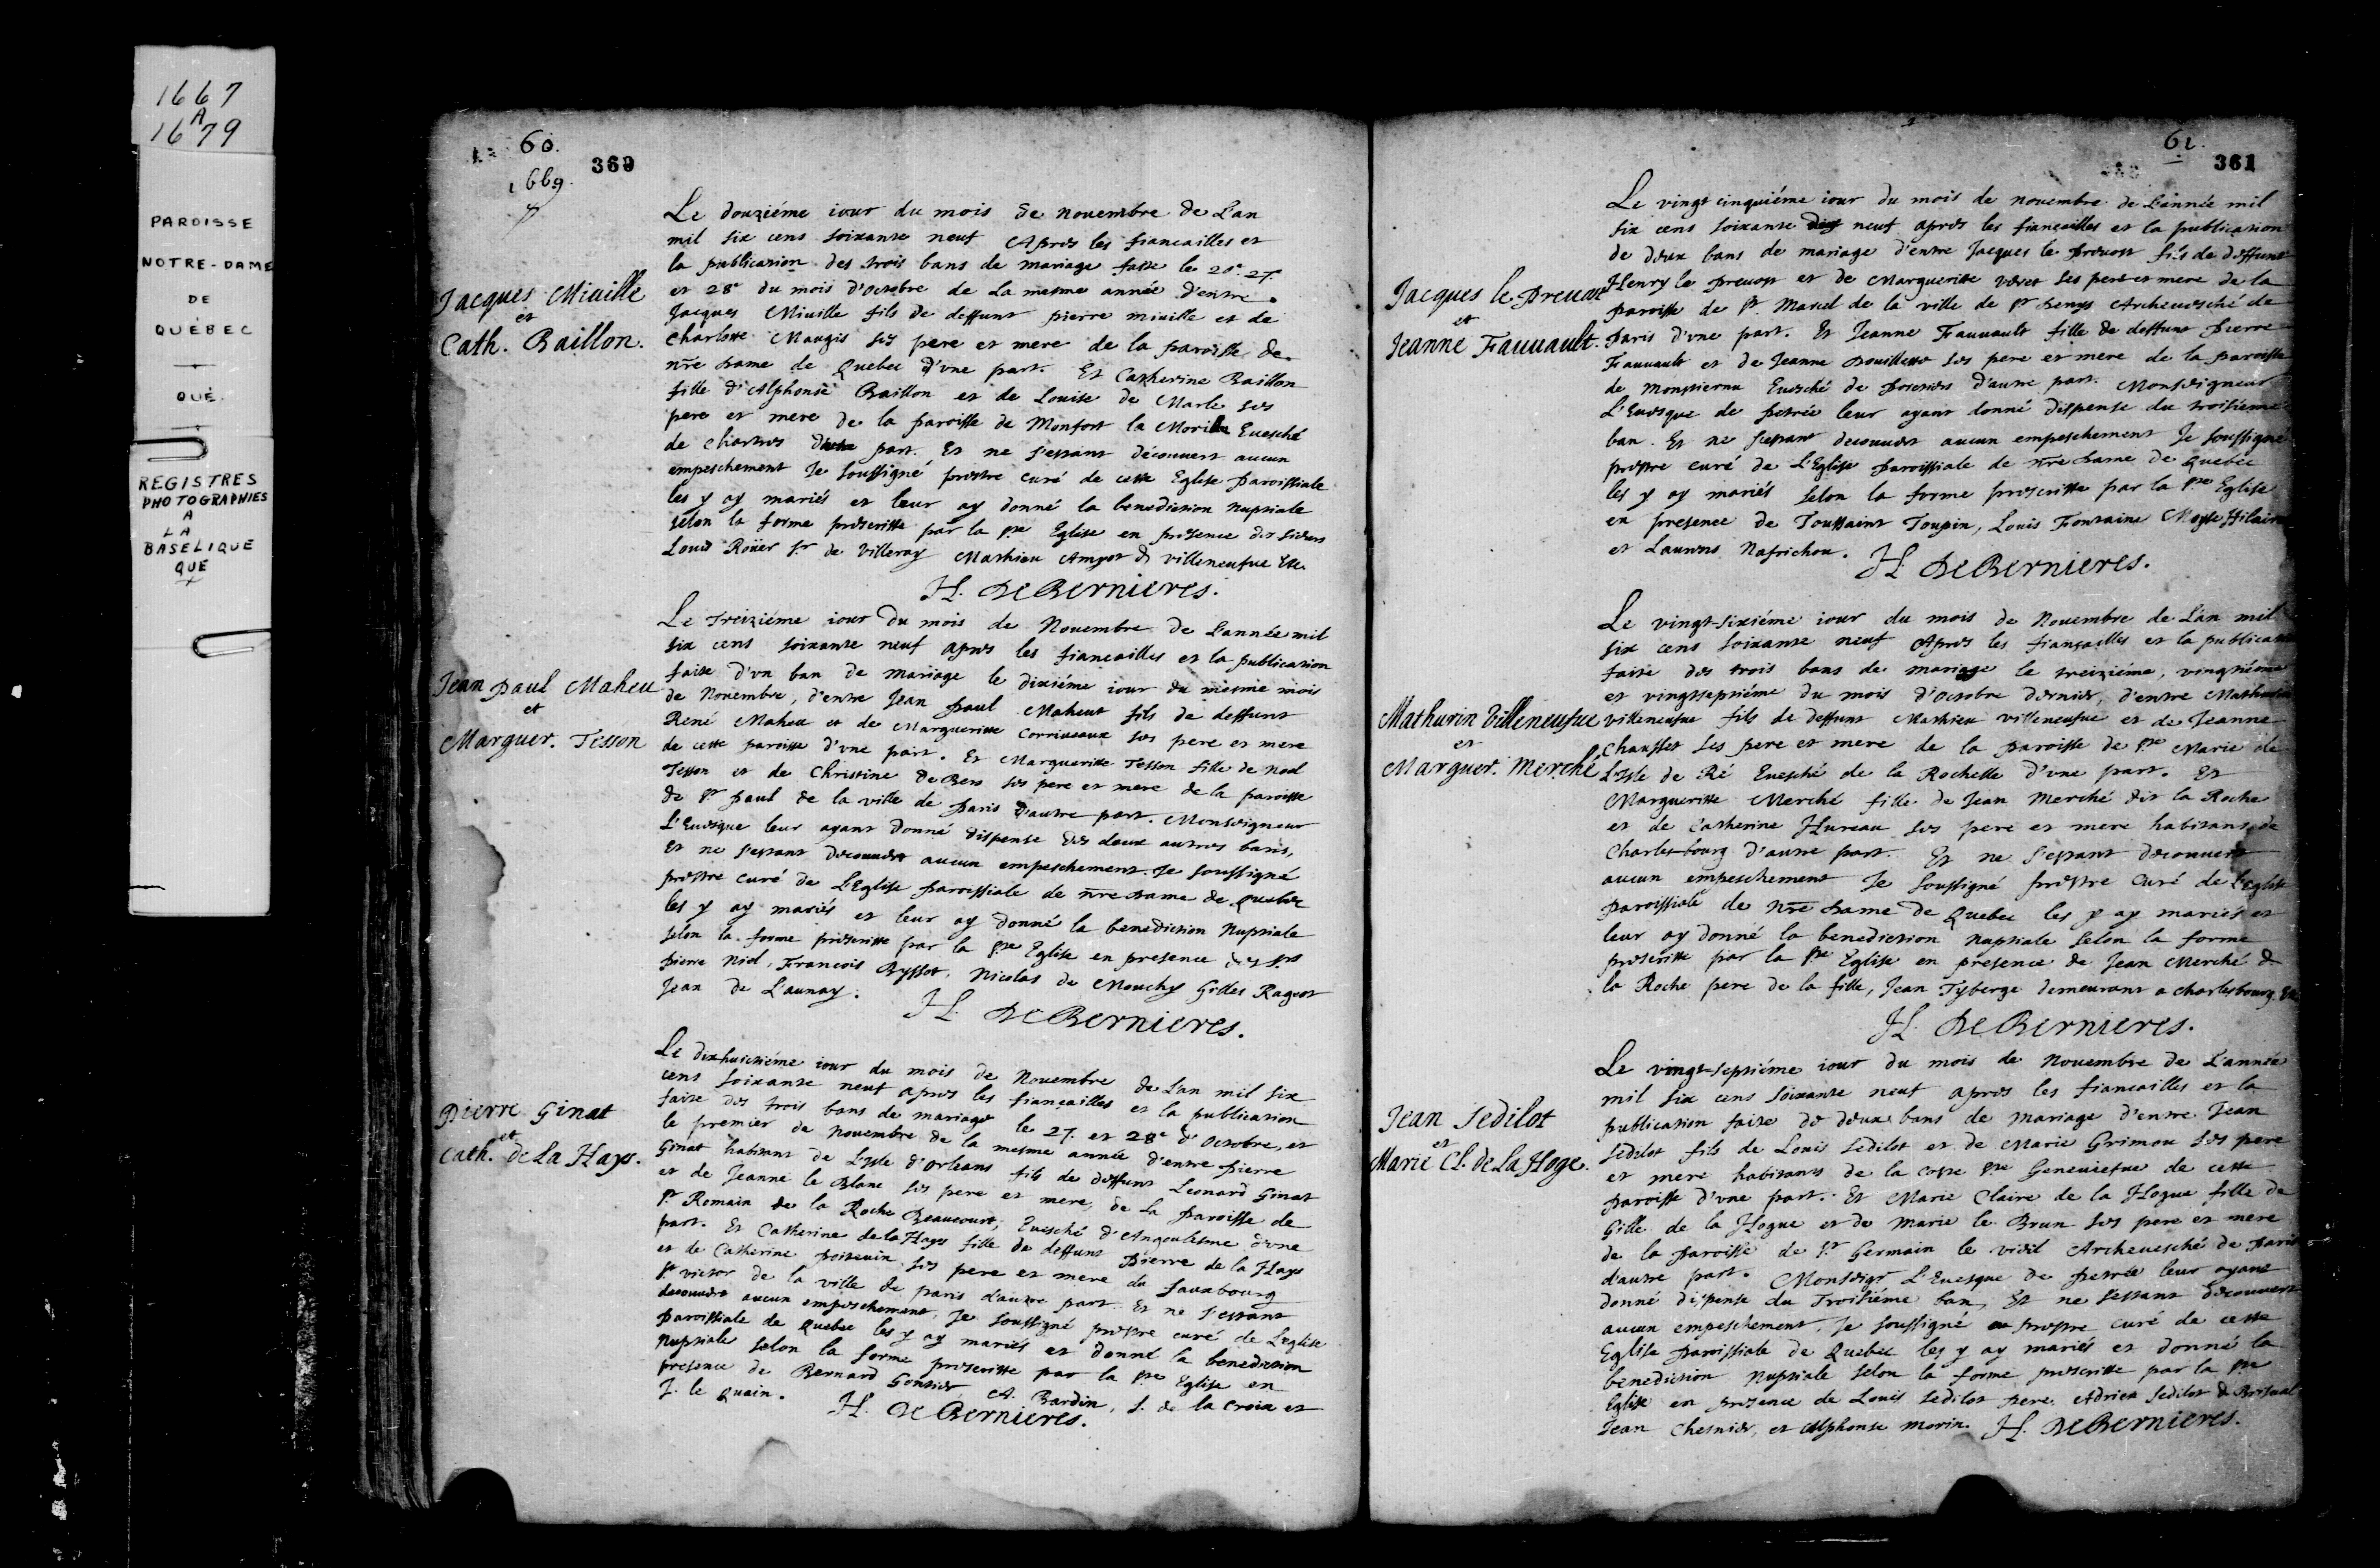 1667
A
1679
PAROISSE
NOTRE-DAME
DE
QUÉBEC
QUÉ.
REGISTRES
PHOTOGRAPHIES
A
LA
BASELIQUE
QUE
60.
360
1669
Le douziéme iour du mois de Nouembre de L'an
mil six cens soixante neuf Apres les fiancailles et
la publication des trois bans de mariage faitte le 20e. 27e
et 28e du mois d'Octobre de La mesme année d'entre
Jacques Miuille
et
Cath. Baillon.
Jacques Miuille fils de deffunt pierre miuille et de
Charlotte Maugis ses pere et mere de la paroisse de
nre Dame de Quebec d'vne part. Et Catherine Baillon
fille d'Alphonse Baillon et de Louise de Marle ses
pere et mere de la paroisse de Monfort la Morille Euesché
de chartres part. Et ne s'estant découuert aucun
empeschement Je soussigné prestre curé de cette Eglise Paroissiale
les y ay mariés et leur ay donné la benediction Nuptiale
selon la forme prescritte par la ste Eglise en presence des sieurs
Louis Roüer sr de Villeray Mathieu Amyot d villeneufue Etc.
H. De Bernieres.
Le Treiziéme iour du mois de Nouembre de L'année mil
six cens soixante neuf apres les fiancailles et la publication
faite d'vn ban de mariage le dixiéme iour du mesme mois
Jean paul Maheu
et
Marguer. Tesson
de Nouembre, d'entre Jean paul Maheut fils de deffunt
René Maheu et de Margueritte Corriueaux ses pere et mere
de cette paroisse d'vne part. Et Margueritte Tesson fille de Noel
Tesson et de Christine de Bers ses pere et mere de la paroisse
de st paul de la ville de Paris d'autre part. Monseigneur
L'Euesque leur ayant donné dispense des deux autres bans,
Et ne s'estant decouuert aucun empeschement. Je soussigné
prestre curé de L'Eglise paroissiale de nre Dame de Quebec
les y ay mariés et leur ay donné la benediction Nuptiale
selon la forme prescritte par la ste Eglise en presence des srs
pierre Niel, Francois Byssot, Nicolas de Mouchy Gilles Rageot
Jean de Launay. H. De Bernieres.
Le dixhuictiéme iour du mois de Nouembre de L'an mil six
cens soixante neuf apres les fiançailles et la publication
faite des trois bans de mariage le 27. et 28e d'Octobre, et
Pierre Ginat
et
Cath. de La Hays.
le premier de Nouembre de la mesme année d'entre pierre
Ginat habitant de L'Isle d'Orleans fils de deffunt Leonard Ginat
et de Jeanne le Blanc ses pere et mere, de La Paroisse de
st Romain de la Roche Beaucourt, Euesché d'Angoulesme d'vne
part. Et Catherine de la Hays fille de deffunt Pierre de la Hays
et de Catherine poiteuin ses pere et mere du fauxbourg
st victor de la ville de paris d'autre part. Et ne s'estant
decouuert aucun empeschement, Je soussigné prestre curé de L'eglise
paroissiale de Quebec les y ay mariés et donné la benediction
Nuptiale selon la forme prescritte par la ste Eglise en
presence de Bernard Gontier A. Bardin, S. de la Croix et
J. le Quain. H. De Bernieres.
61.
361
Le vingt cinquiéme iour du mois de nouembre de L'année mil
six cens soixante neuf apres les fiançailles et la publication
de deux bans de mariage d'entre Jacques le Preuost fils de deffunt
Jacques le Preuost
et
Jeanne Fauuault.
Henry le preuost et de Margueritte ses pere et mere de la
paroisse de st Marcel de la ville de st Denys Archeuesché de
Paris d'vne part. Et Jeanne Fauuault fille de deffunt Pierre
Fauuault et de Jeanne ses pere et mere de la paroisse
de Monstierneu Euesché de Poictiers d'autre part. Monseigneur
L'Euesque de petrée leur ayant donné dispense du troisieme
ban. Et ne s'estant decouuert aucun empeschement Je soussigné
prestre curé de L'Eglise paroissiale de nre Dame de Quebec
les y ay mariés selon la forme prescritte par la ste Eglise
en presence de Toussaint Toupin, Louis Fontaine Moyse Hilaire
et Laurens Nafrichou. H. De Bernieres.
Le vingt-sixiéme iour du mois de Nouembre de L'an mil
six cens soixante neuf Apres les fiançailles et la publication
faite des trois bans de mariage le treiziéme, vingtiéme
et vingtseptiéme du mois d'Octobre dernier, d'entre Mathurin
Mathurin Villeneufue
et
Marguer. Merché
villeneufue fils de deffunt Mathieu villeneufue et de Jeanne
Chausset ses pere et mere de la paroisse de ste Marie de
L'Isle de Ré Euesché de la Rochelle d'vne part. Et
Margueritte Merché fille de Jean Merché dit la Roche
et de Catherine Hureau ses pere et mere habitans de
Charlesbourg d'autre part. Et ne s'estant decouuert
aucun empeschement Je soussigné prestre Curé de L'Eglise
Paroissiale de Nre Dame de Quebec les y ay mariés et
leur ay donné la benediction Nuptiale selon la forme
prescritte par la ste Eglise en presence de Jean Merché d
la Roche pere de la fille, Jean Tyberge demeurant a charlesbourg Etc
H. De Bernieres.
Le vingt-septiéme iour du mois de Nouembre de L'année
mil six cens soixante neuf apres les fiancailles et la
publication faite de deux bans de mariage d'entre Jean
Jean Sedilot
et
Marie Cl. de La Hoge.
Sedilot fils de Louis Sedilot et de Marie Grimou ses pere
et mere habitants de la coste ste Geneuiefue de cette
paroisse d'vne part. Et Marie Claire de la Hogue fille de
Gille de la Hogue et de Marie le Brun ses pere et mere
de la paroisse de st Germain le vieil Archeuesché de Paris
d'autre part. Monseigr L'Euesque de petrée leur ayant
donné dispense du Troisiéme ban, Et ne s'estant decouuert
aucun empeschement, Je soussigné prestre curé de cette
Eglise paroissiale de Quebec les y ay mariés et donné la
benediction Nuptiale selon la forme prescritte par la ste
Eglise en presence de Louis Sedilot pere, Adrien Sedilot d Brisual
Jean Chesnier, et Alphonse Morin. H. De Bernieres.